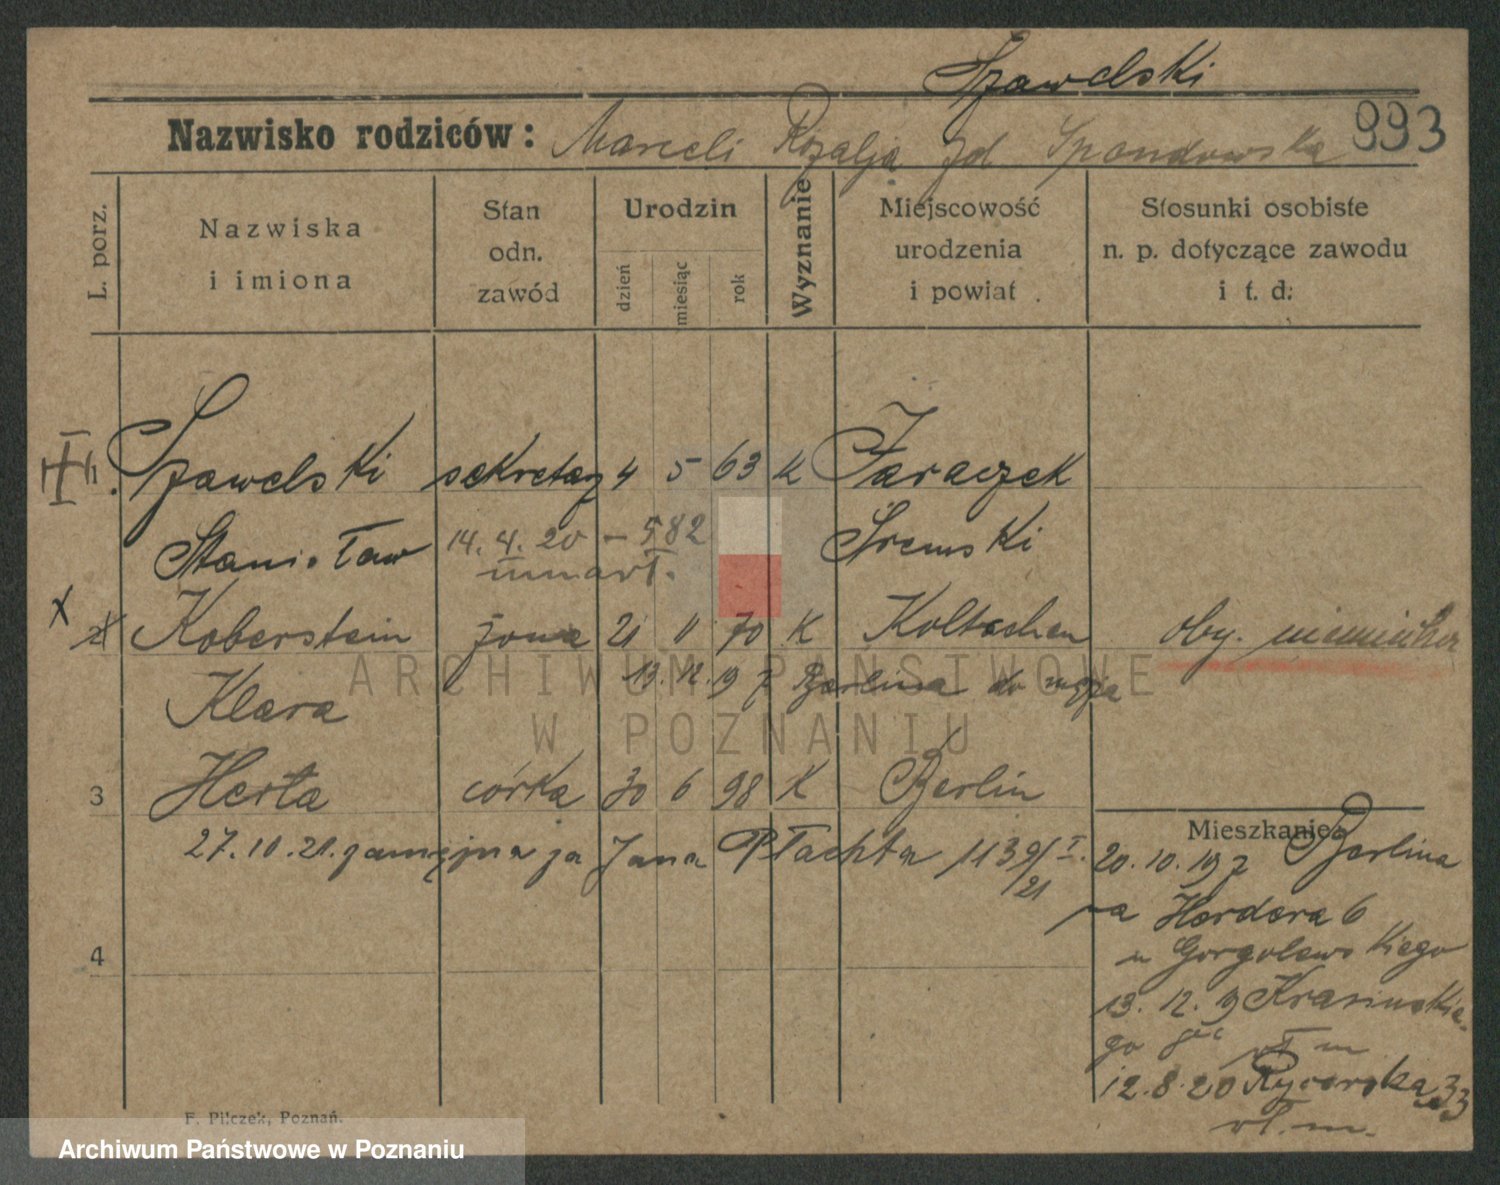 Szawelski
Nazwisko rodziców: Marceli Rozalja zd Spandowska 993
L. porz.
Nazwiska
i imiona
Stan
odn.
zawód
Urodzin
dzień
miesiąc
rok
Wyznanie
Miejscowość
urodzenia
i powiat
Stosunki osobiste
n. p. dotyczące zawodu
i t. d.
1. Szawelski sekretarz 4 5 63 K Jaraczek
Stanisław 14. 4. 20 – 582 Śremski
umarł.
x 2 Koberstein żona 21 11 70 K Koltschen oby. niemiecka
13. 12. 19 z Berlina do męża
Klara
3 Herta córka 30 6 98 K Berlin
27. 10. 21. zamężna za Jana Płachta 1139/I.
/21
4
Mieszkanie
20. 10. 19 z Berlina
na Herdera 6
u Gorgolewskiego
13. 12. 19 Krasińskie-
go
wł m
12. 8. 20 Rycerska 33
wł. m.
F. Pilczek, Poznań.
ARCHIWUM PAŃSTWOWE
W POZNANIU
Archiwum Państwowe w Poznaniu